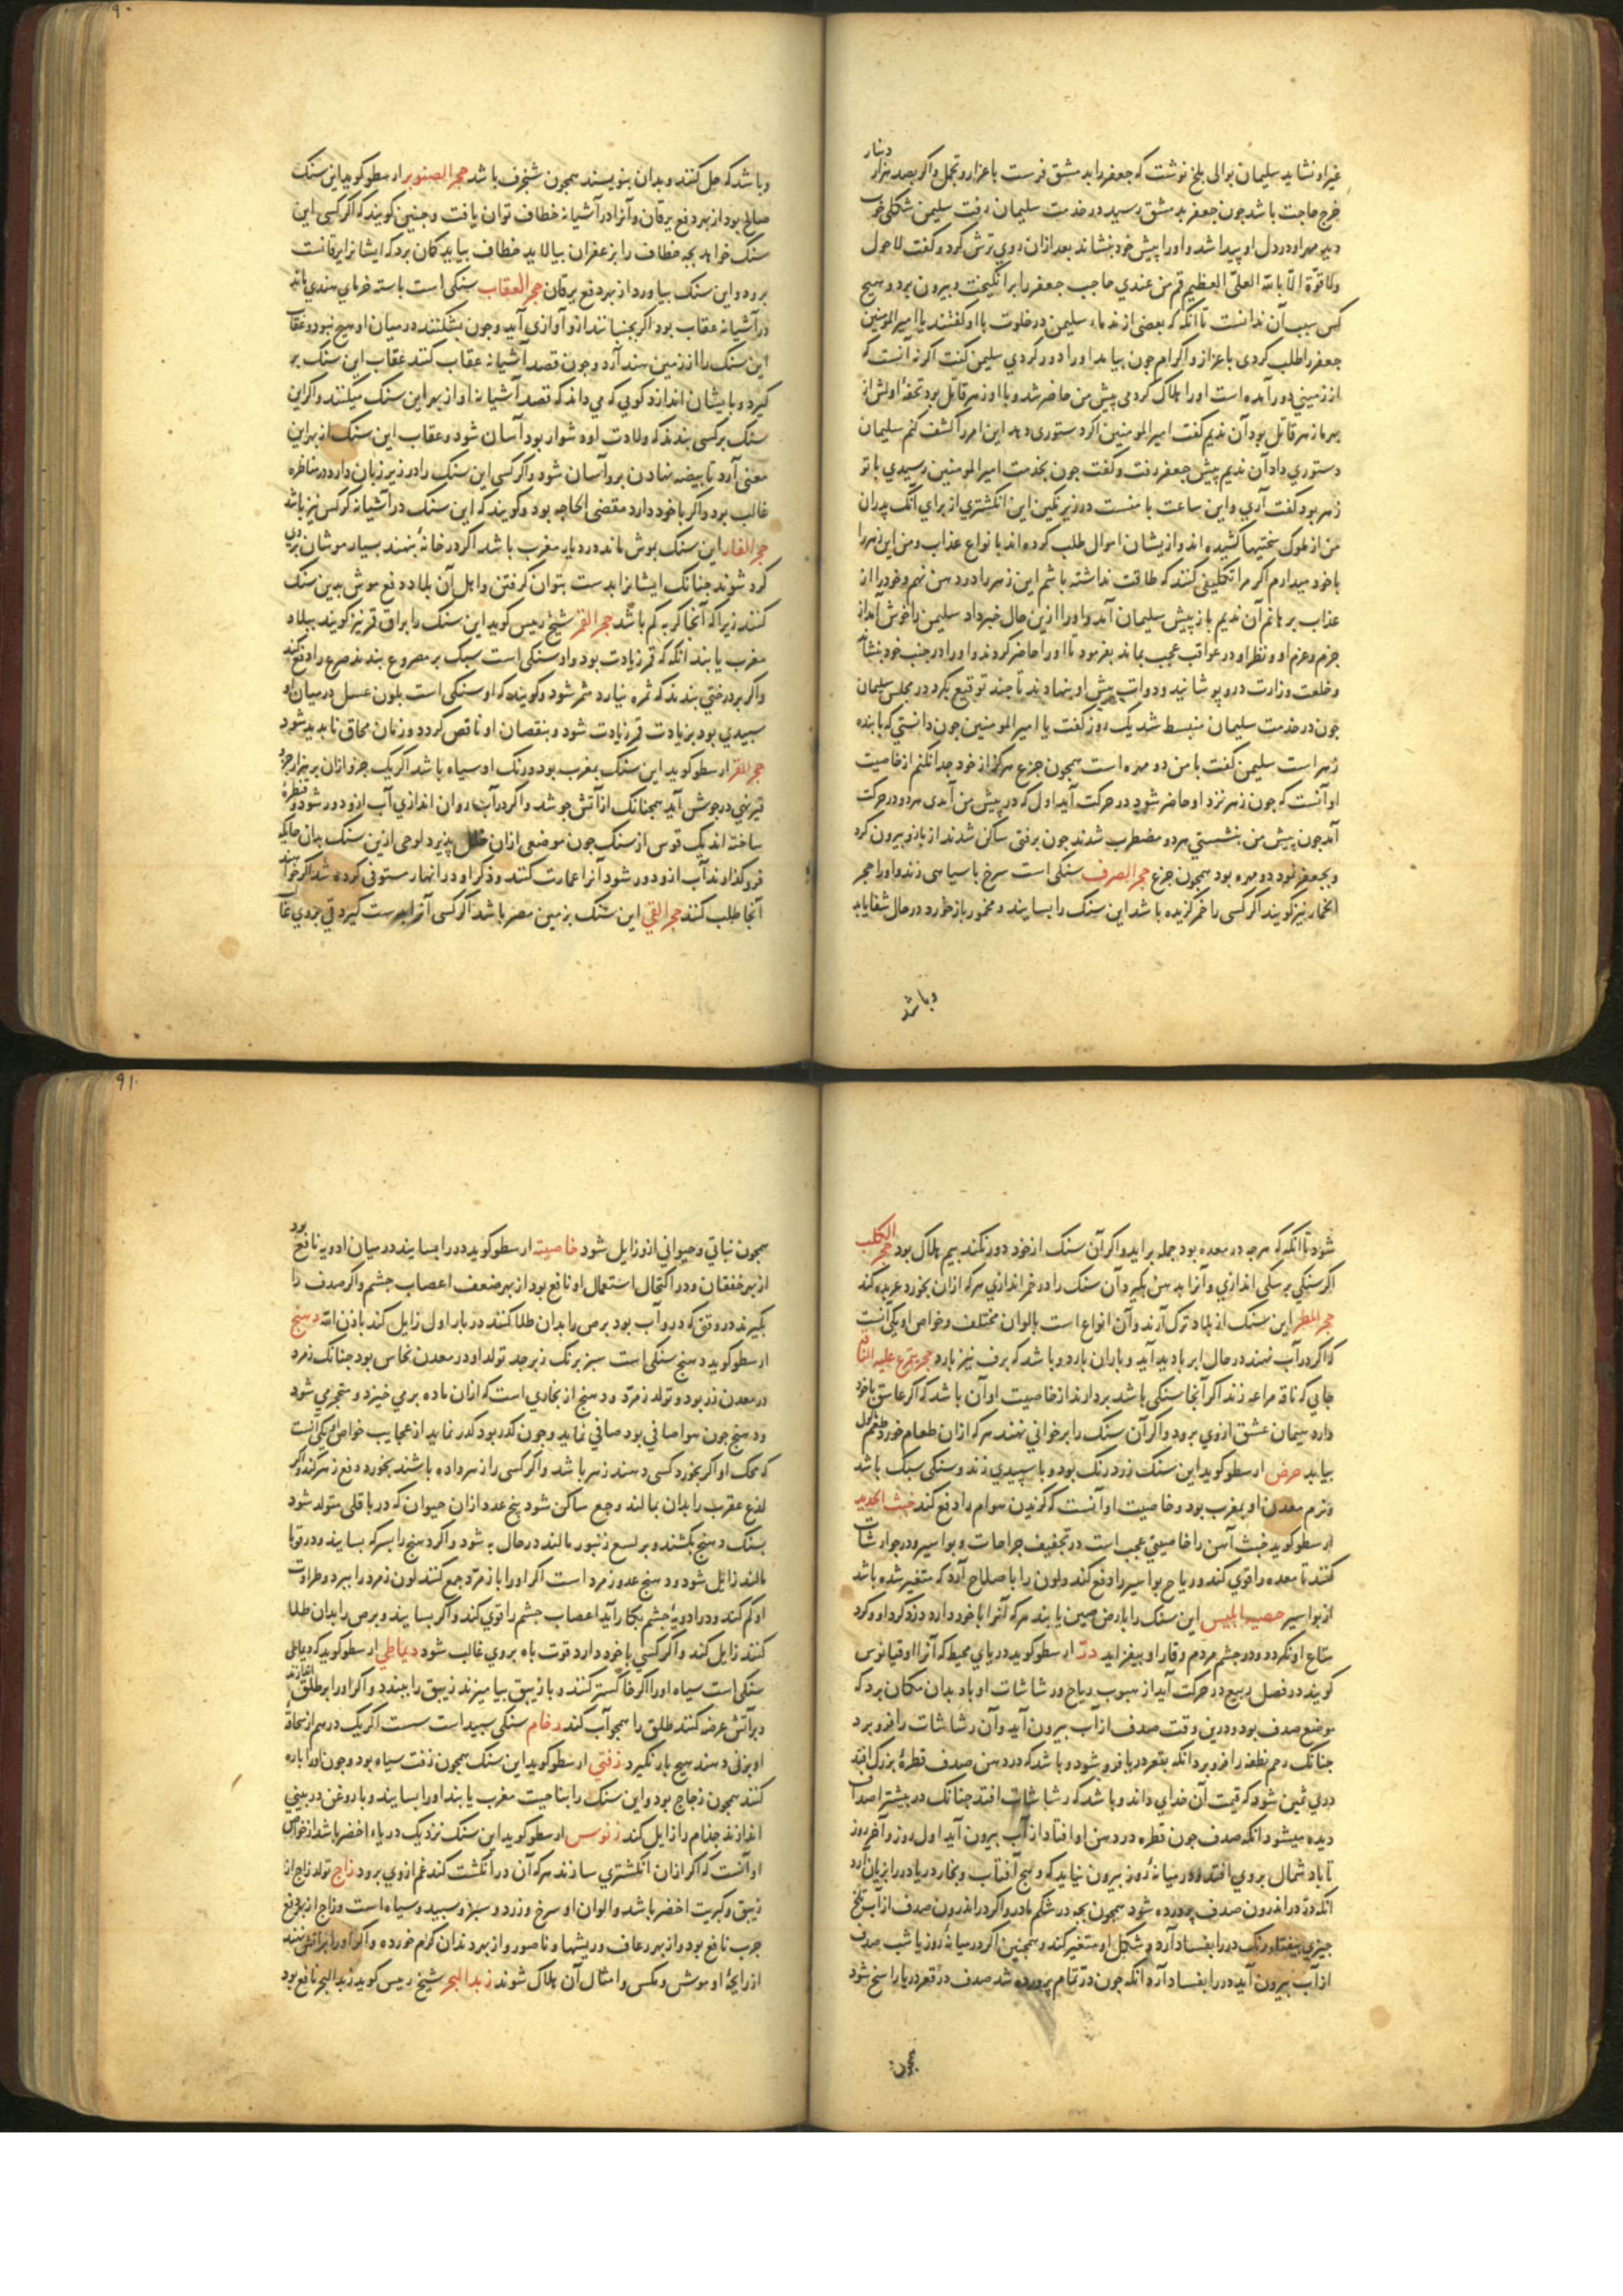 غیر او نشاید سلیمان بوالی بلخ نوشت که جعفر را بدمشق فرست باعزاز و تجمل واکر بصد هزار دینار
خرج حاجت باشد جون جعفر بدمشق رسید در خدمت سلیمان رفت سلیمن شکلی خوب
دید مهر او در دل او پیدا شد و او را پیش خود بنشاند بعد ازان روی ترش کرد و کفت لا حول
ولا قوّة الّا بالله العلیّ العظیم قم من عندی حاجب جعفر را برانکیخت و بیرون برد و هیچ
کس سبب آن ندانست تا آنکه که بعضی از ندماء سلیمن در خلوت با او کفتند یا امیر المومنین
جعفر را طلب کردی باعزاز واکرام جون بیامد او را دور کردی سلیمن کفت اکر نه آنست که
از زمینی دور آمده است او را هلاک کردمی پیش من حاضر شد و با او زهر قاتل بود تحفهٔ اولش از
بهر ما زهر قاتل بود آن ندیم کفت امیر المومنین اکر دستوری دهد این امر را کشف کنم سلیمان
دستوری داد آن ندیم پیش جعفر رفت و کفت جون بخدمت امیر المومنین رسیدی با تو
زهر بود کفت آری و این ساعت با منست در زیر نکین این انکشتری از برای آنک پدران
من از ملوک سختیها کشیده اند و ازیشان اموال طلب کرده اند با نواع عذاب و من این زهر را
با خود میدارم اکر مرا تکلیفی کنند که طاقت نداشته باشم این زهر را در دهن نهم و خود را از
عذاب برهانم آن ندیم باز پیش سلیمان آمد و او را ازین حال خبر داد سلیمن را خوش آمد از
حزم و عزم او و نظر او در عواقب عجب بماند بفرمود تا او را حاضر کردند و او را در جنب خود بنشاند
و خلعت وزارت درو پوشانید و دوات پیش او بنهادند تا جند توقیع بکرد در مجلس سلیمان
جون در خدمت سلیمان منبسط شد یک روز کفت یا امیر المومنین جون دانستی که با بنده
زهر است سلیمن کفت با من دو مهره است همجون جزع هرکز از خود جدا نکنم از خاصیت
او آنست که چون زهر نزد او حاضر شود در حرکت آید اول که در پیش من آمدی هر دو در حرکت
آمد جون پیش من بنشستی هر دو مضطرب شدند جون برفتی ساکن شدند از بازو بیرون کرد
و بجعفر نمود دو مهره بود همجون جزع حجر الصرف سنکی است سرخ با سیاهی زند و او را حجر
الخمار نیز کویند اکر کسی را خمر کزیده باشد این سنک را بسایند و مخمور باز خورد در حال شفا یابد
وباشد
وباشد که حل کنند و بدان بنویسند همجون شنجرف باشد حجر الصنوبر ارسطو کوید این سنک
صالح بود از بهر دفع یرقان و آنرا در آشیانهٔ خطاف توان یافت و جنین کویند که اکر کسی این
سنک خواهد بجهٔ خطاف را بزعفران بیالاید خطاف بیاید کمان برد که ایشانرا یرقانست
برود و این سنک بیاورد از بهر دفع یرقان حجر العقاب سنکی است باستهٔ خرمای هندی ماند
در آشیانهٔ عقاب بود اکر بجنبانند ازو آوازی آید و جون بشکنند در میان او هیچ نبود و عقاب
این سنک را از زمین هند آرد و جون قصد آشیانهٔ عقاب کنند عقاب این سنک بر
کیرد و بایشان اندازد کویی که می داند که قصد آشیانهٔ او از بهر این سنک میکنند و اکر این
سنک بر کسی بندند که ولادت او دشوار بود آسان شود و عقاب این سنک از بهر این
معنی آرد تا بیضه نهادن برو آسان شود و اکر کسی این سنک را در زیر زبان دارد در مناظره
غالب بود و اکر با خود دارد مقضی الحاجه بود و کویند که این سنک در آشیانهٔ کرکس نیز باشد
حجر الفار این سنک بموش ماند در دیار مغرب باشد اکر در خانهٔ بنهند بسیار موشان بروی
کرد شوند جنانک ایشانرا بدست بتوان کرفتن و اهل آن بلاد دفع موش بدین سنک
کنند زیرا که آنجا کربه کم باشد حجر القمر شیخ رییس کوید این سنک را براق قمر نیز کویند ببلاد
مغرب یابند آنکه که قمر زیادت بود و او سنکی است سبک بر مصروع بندند صرع را دفع کند
و اکر بر درختی بندند که ثمره نیارد مثمر شود و کویند که او سنکی است بلون عسل در میان او
سپیدی بود بزیادت قمر زیادت شود و بنقصان او ناقص کردد و زمان محاق نابدید شود
حجر القر ارسطو کوید این سنک بمغرب بود و رنک او سیاه باشد اکر یک جزو ازان بر هزار جزؤ
قیر نهی در جوش آید همجنانک از آتش جوشد و اکر در آب روان اندازی آب ازو دور شود و قنطرهٔ
ساخته اند یک قوس از سنک جون موضعی ازان خلل پذیرد لوحی ازین سنک بدان جایکه
فرو کذارند آب ازو دور شود آنرا عمارت کنند و ذکر او در انهار مستوفی کرده شد اکر خواهند
آنجا طلب کنند حجر القی این سنک بزمین مصر باشد اکر کسی آنرا بدست کیرد قی بروی غالب
شود تا آنکه که هرجه در معده بود جمله برآید و اکر آن سنک از خود دور نکند بیم هلاک بود حجر الکلب
اکر سنکی بر سکی اندازی و آنرا بدهن بکیرد آن سنک را در خمر اندازی هر که ازان بخورد عربده کند
حجر المطر این سنک از بلاد ترک آرند و آن انواع است بالوان مختلف و خواص او یکی آنست
که اکر در آب نهند در حال ابر بادید آید و باران بارد و باشد که برف نیز بارد حجر یتمرغ علیه الناقه
جایی که ناقه مراغه زند اکر آنجا سنکی باشد بردارند از خاصیت او آن باشد که اکر عاشق با خود
دارد سلیمان عشق ازوی برود و اکر آن سنک را بر خوانی نهند هر که ازان طعام خورد طعم
بیابد حرض ارسطو کوید این سنک زرد رنک بود و با سپیدی زند و سنکی سبک باشد
ونرم معدن او بمغرب بود و خاصیت او آنست که کزیدن هوام را دفع کند خبث الحدید
ارسطو کوید خبث آهن را خاصیتی عجب است در تجفیف جراحات و بواسیر و در جوارشات
کنند تا معده را قوی کند و ریاح بواسیر را دفع کند و لون را باصلاح آرد که متغیر شده باشد
از بواسیر حصیة ابلیس این سنک را بارض صین یابند هر که آنرا با خود دارد دزد کرد او و کرد
متاع او نکردد و در چشم مردم وقار او بیفزاید درّ ارسطو کوید در دریای محیط که آنرا اوقیانوس
کویند در فصل ربیع در حرکت آید از هبوب ریاح و رشاشات او باد بدان مکان برد که
موضع صدف بود و درین وقت صدف از آب بیرون آید و آن رشاشات را فرو برد
جنانک رحم نطفه را فرو برد آنکه بقعر دریا فرو شود و باشد که در دهن صدف قطرهٔ بزرک افتد
دری ثمین شود که قیمت آن خدای داند و باشد که رشاشات افتد چنانک در بیشتر اصداف
دیده میشود آنکه صدف جون قطره در دهن او افتاد از آب بیرون آید اول روز و آخر روز
تا باد شمال بروی افتد و در میانهٔ روز بیرون نیاید که وهج آفتاب و بخار دریا در را بزیان آرد
آنکه در در اندرون صدف پرورده شود همجون بجه در شکم مادر و اکر در اندرون صدف از آب تلخ
جیزی بیفتد رنک در را بفساد آرد و شکل او متغیر کند و همجنین اکر در میانهٔ روز یا شب صدف
از آب بیرون آید در را بفساد آرد آنکه جون در تمام پرورده شد صدف در قعر دریا راسخ شود
همجون
همجون نباتی و حیوانی ازو زایل شود خاصیته ارسطو کوید در را بسایند در میان ادویه نافع بود
از بهر خفقان و در اکتحال استعمال او نافع بود از بهر ضعف اعصاب جشم و اکر صدف را
بکیرند در وقتی که درو آب بود برص را بدان طلا کنند در بار اول زایل کند باذن الله دهنج
ارسطو کوید دهنج سنکی است سبز برنک زبرجد تولد او در معدن نحاس بود جنانک زمرد
در معدن زر بود و تولد زمرّد و دهنج از بخاری است که ازان ماده بر می خیزد و متحجر می شود
و دهنج جون هوا صافی بود صافی نماید و جون کدر بود کدر نماید از عجایب خواص او یکی آنست
که محک او اکر بخورد کسی دهند زهر باشد و اکر کسی را زهر داده باشند بخورد دفع زهر کند و اکر
لذع عقرب را بدان بمالند وجع ساکن شود پنج عدد ازان حیوان که در باقلی متولد شود
بسنک دهنج بکشند و بر لسع زنبور مالند در حال به شود و اکر دهنج را بسرکه بسایند و در قوبا
مالند زایل شود و دهنج عدو زمرد است اکر او را با زمرّد جمع کنند لون زمرد را ببرد و طراوت
او کم کند و در ادویهٔ جشم بکار آید اعصاب جشم را قوی کند و اکر بسایند و برص را بدان طلا
کنند زایل کند و اکر کسی با خود دارد قوت باه بروی غالب شود دیماطی ارسطو کوید که دیماطی
سنکی است سیاه او را اکر خاکستر کنند و با زیبق بیامیزند زیبق را ببندد و اکر او را بر طلق اندازند
و بر آتش عرضه کنند طلق را همجو آب کند رخام سنکی سپید است سست اکر یک درهم از نحاتهٔ
او بزنی دهند هیچ بار نکیرد زفتی ارسطو کوید این سنک همجون زفت سیاه بود و جون او را پاره
کنند همجون زجاج بود و این سنک را بناحیت مغرب یابند او را بسایند و با روغن در بینی
اندازند جذام را زایل کند زنوس ارسطو کوید این سنک نزدیک دریاء اخضر باشد از خواص
او آنست که اکر ازان انکشتری سازند هر که آن در انکشت کند غم ازوی برود زاج تولد زاج از
زیبق و کبریت اخضر باشد و الوان او سرخ و زرد و سبز و سپید و سیاه است و زاج از بهر دفع
جرب نافع بود و از بهر رعاف و ریشها و ناصور و از بهر دندان کرم خورده و اکر او را بر آتش نهند
از رایحهٔ او موش و مکس و امثال آن هلاک شوند زبد البحر شیخ رییس کوید زبد البحر نافع بود